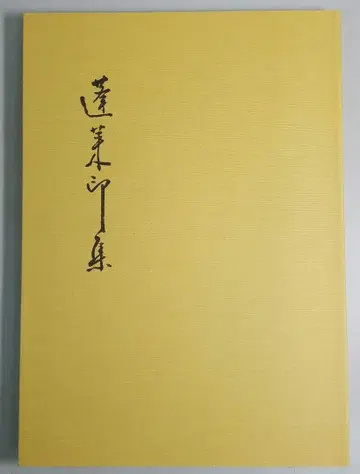 蓬莱印集